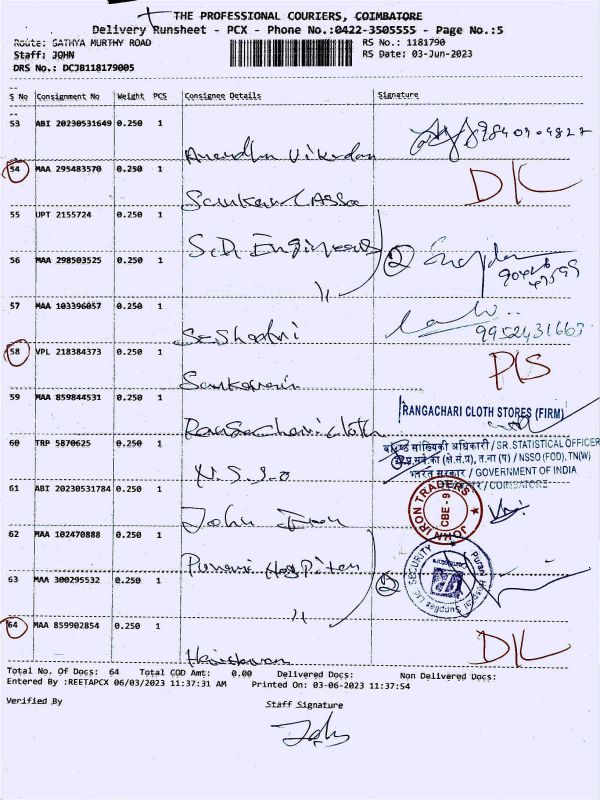 THE PROFESSIONAL COURIERS, COIMBATORE
Delivery Runsheet - PCX - Phone No.:0422-3505555 - Page No.:5
Route: SATHYA MURTHY ROAD
RS No.: 1181790
Staff: JOHN
RS Date: 03-Jun-2023
DRS No.: DCJB118179005
S No Consignment No Weight PCS Consignee Details Signature
53 ABI 20230531649 0.250 1
54 MAA 295483570 0.250 1
D/L
55 UPT 2155724 0.250 1
S.D. Engineers
56 MAA 298503525 0.250 1
2
57 MAA 103396057 0.250 1
Seshadri
9952431663
58 VPL 218384373 0.250 1
P/S
59 MAA 859844531 0.250 1
Rangachari cloth
RANGACHARI CLOTH STORES (FIRM)
60 TRP 5870625 0.250 1
वरिष्ठ सांख्यिकी अधिकारी / SR. STATISTICAL OFFICER
त.ना (प) / NSSO (FOD), TN(W)
भारत सरकार / GOVERNMENT OF INDIA
/ COIMBATORE
61 ABI 20230531784 0.250 1
John Iron
JOHN IRON TRADERS
CBE - 9
62 MAA 102470888 0.250 1
Purani Hospital
63 MAA 300295532 0.250 1
2
Purani Hospital Supplies Ltd. SECURITY
64 MAA 859902854 0.250 1
D/L
Total No. Of Docs: 64 Total COD Amt: 0.00 Delivered Docs: Non Delivered Docs:
Entered By :REETAPCX 06/03/2023 11:37:31 AM Printed On: 03-06-2023 11:37:54
Verified By
Staff Signature
John